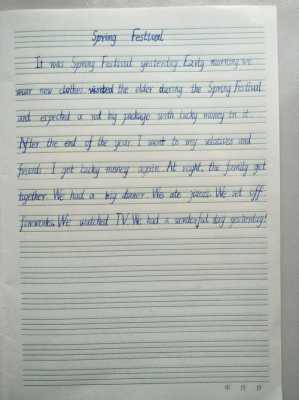 Spring Festival
It was Spring Festival yesterday. Early morning, we
wear new clothes visited the elder during the Spring Festival
and expected a red big package with lucky money in it.
After the end of the year. I went to my relatives and
friends. I got lucky money again. At night, the family get
together. We had a big dinner. We ate. We set off
fireworks. We watched TV. We had a wonderful day yesterday!
年 月 日